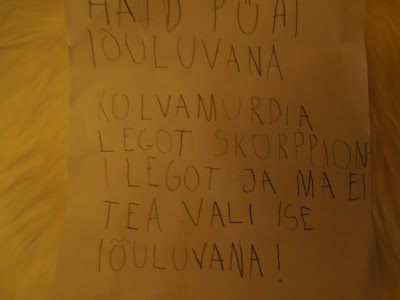 HÄID PÜHI
IÕULUVANA
KOLVAMURDIA
LEGOT SKORPPION-
I LEGOT JA MA EI
TEA VALI ISE
IÕULUVANA!